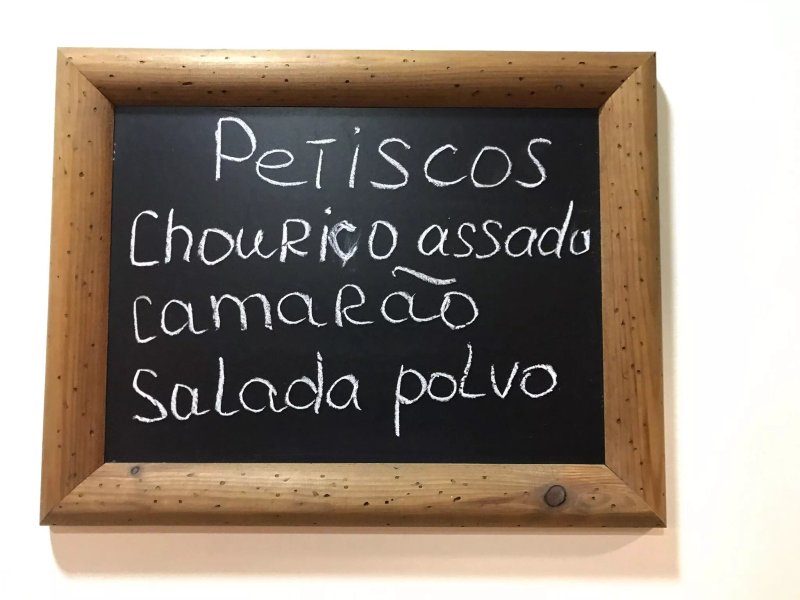 Petiscos
Chouriço assado
Camarão
Salada polvo